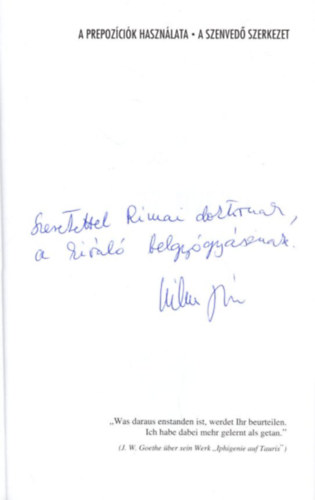 A PREPOZÍCIÓK HASZNÁLATA • A SZENVEDŐ SZERKEZET
Szeretettel Rimai doktornak,
a kiváló belgyógyásznak.
„Was daraus enstanden ist, werdet Ihr beurteilen.
Ich habe dabei mehr gelernt als getan.”
(J. W. Goethe über sein Werk „Iphigenie auf Tauris”)